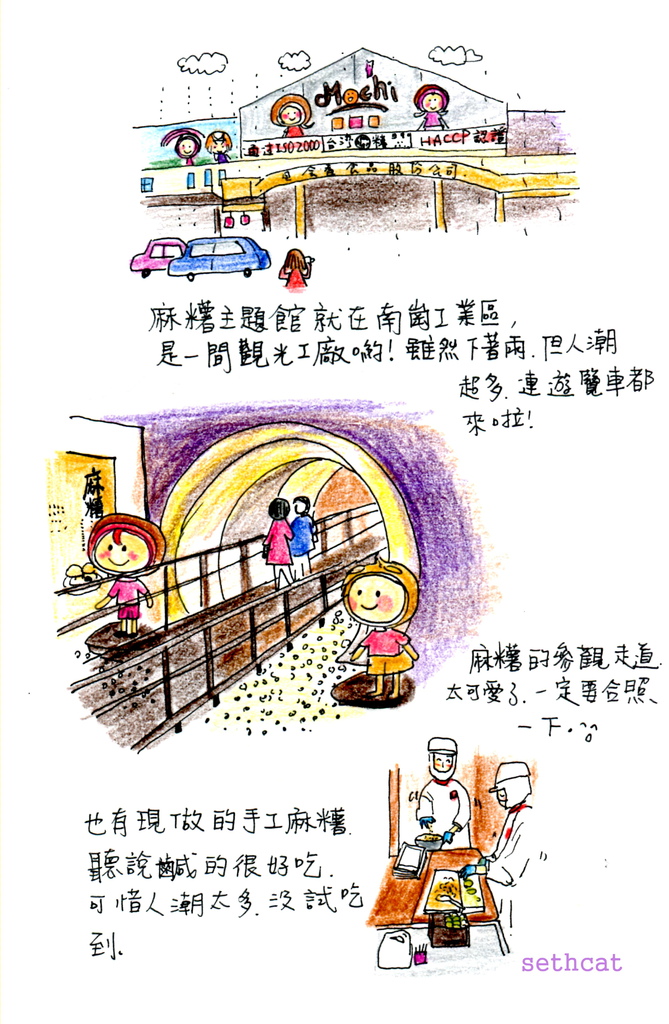 Mochi
通過ISO2000
台湾
糬
HACCP認證
食品股份公司
麻糬主題館就在南崗工業區,
是一間觀光工廠喲!雖然下著雨.但人潮
超多.連遊覽車都
來啦!
麻糬
麻糬的參觀走道.
太可愛了.一定要合照
一下.
也有現做的手工麻糬.
聽說鹹的很好吃.
可惜人潮太多.沒試吃
到.
sethcat